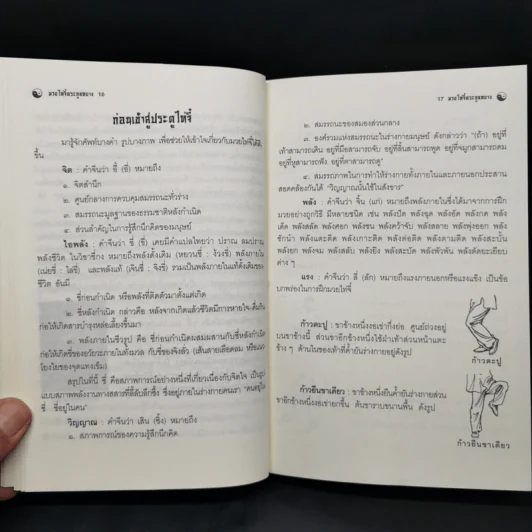 มวยไท่จี๋ตระกูลหยาง 16
ก่อนเข้าสู่ประตูไท่จี๋
มารู้จักศัพท์บางคำ รูปบางภาพ เพื่อช่วยให้เข้าใจเกี่ยวกับมวยไท่จี๋
ขึ้น
จิต : คำจีนว่า อี้ (ยี่) หมายถึง
๑. จิตสำนึก
๒. ศูนย์กลางการควบคุมสมรรถนะทั่วร่าง
๓. สมรรถนะมูลฐานของธรรมชาติหลังกำเนิด
๔. ส่วนสำคัญในการรู้สึกนึกคิดของมนุษย์
ไอพลัง : คำจีนว่า ชี่ (ขี่) เคยมีคำแปลไทยว่า ปราณ ลมปราณ
พลังชีวิต ในวิชาชี่กง หมายถึงพลังดั้งเดิม (หยวนชี่ : ง้วงขี่) พลังภายใน
(เน่ยชี่ : ไล่ขี่) และพลังแท้ (เจินชี่ : จิงขี่) รวมเป็นพลังภายในแท้ดั้งเดิมของ
ชีวิต อันมี
๑. ชี่ก่อนกำเนิด หรือพลังที่ติดตัวมาตั้งแต่เกิด
๒. ชี่หลังกำเนิด กล่าวคือ หลังจากเกิดแล้วชีวิตมีการหายใจ-ดื่มกิน
ก่อให้เกิดสารบำรุงหล่อเลี้ยงขึ้นมา
๓. พลังภายในชีวรูป คือ ชี่ก่อนกำเนิดผสมผสานกับชี่หลังกำเนิด
ก่อให้เกิดชี่ของอวัยวะภายในทั้งมวล กับชี่ของจิงลั่ว (เส้นสายเลือดลม หรือแนว
โยงใยของจุดแทงเข็ม)
สรุปในที่นี้ ชี่ คือสภาพการณ์อย่างหนึ่งที่เกี่ยวเนื่องกับจิตใจ เป็นรูป
แบบสภาพพลังงานทางสสารที่ลี้ลับลึกซึ้ง ซึ่งอยู่ภายในร่างกายคนเรา "คนอยู่ใน
ชี่ ชี่อยู่ในคน"
วิญญาณ : คำจีนว่า เสิน (ซิ้ง) หมายถึง
๑. สภาพการณ์ของความรู้สึกนึกคิด
17 มวยไท่จี๋ตระกูลหยาง
๒. สมรรถนะของสมองส่วนกลาง
๓. องค์รวมแห่งสมรรถนะในร่างกายมนุษย์ ดังกล่าวว่า "(ถ้า) อยู่ที่
เท้าสามารถเดิน อยู่ที่มือสามารถจับ อยู่ที่ลิ้นสามารถพูด อยู่ที่จมูกสามารถดม
อยู่ที่หูสามารถฟัง อยู่ที่ตาสามารถดู"
๔. สมรรถภาพในการทำให้ร่างกายทั้งภายในและภายนอกประสาน
สอดคล้องกันได้ "วิญญาณนั้นใช้ในสังขาร"
พลัง : คำจีนว่า จิ้น (แก่) หมายถึงพลังภายในซึ่งได้มาจากการฝึก
มวยอย่างถูกวิธี มีหลายชนิด เช่น พลังปัด พลังฉุด พลังอัด พลังกด พลัง
เด็ด พลังสลัด พลังศอก พลังชน พลังคว้าจับ พลังสลาย พลังพุ่งออก พลัง
ชักนำ พลังแตะติด พลังเกาะติด พลังต่อติด พลังตามติด พลังสะบั้น พลัง
ยก พลังจม พลังสลัง พลังยืม พลังสะบัด พลังพัวพัน พลังดัดตะเยียบ
ต่าง ๆ
แรง : คำจีนว่า ลี่ (ลัก) หมายถึงแรงภายนอกหรือแรงแข็ง เป็นข้อ
บกพร่องในการฝึกมวยไท่จี๋
ก้าวตะปู : ขาข้างหนึ่งงอเข่ากึ่งย่อ ศูนย์ถ่วงอยู่
บนขาข้างนี้ ส่วนขาอีกข้างหนึ่งใช้ฝ่าเท้าส่วนหน้าแตะ
ข้าง ๆ ด้านในของเท้าที่ค้ำยันร่างกายอยู่ดังรูป
ก้าวตะปู
ก้าวยืนขาเดียว : ขาข้างหนึ่งยืนค้ำยันร่างกายส่วน
ขาอีกข้างหนึ่งงอเข่ายกขึ้น ต้นขาราบขนานพื้น ดังรูป
ก้าวยืนขาเดียว